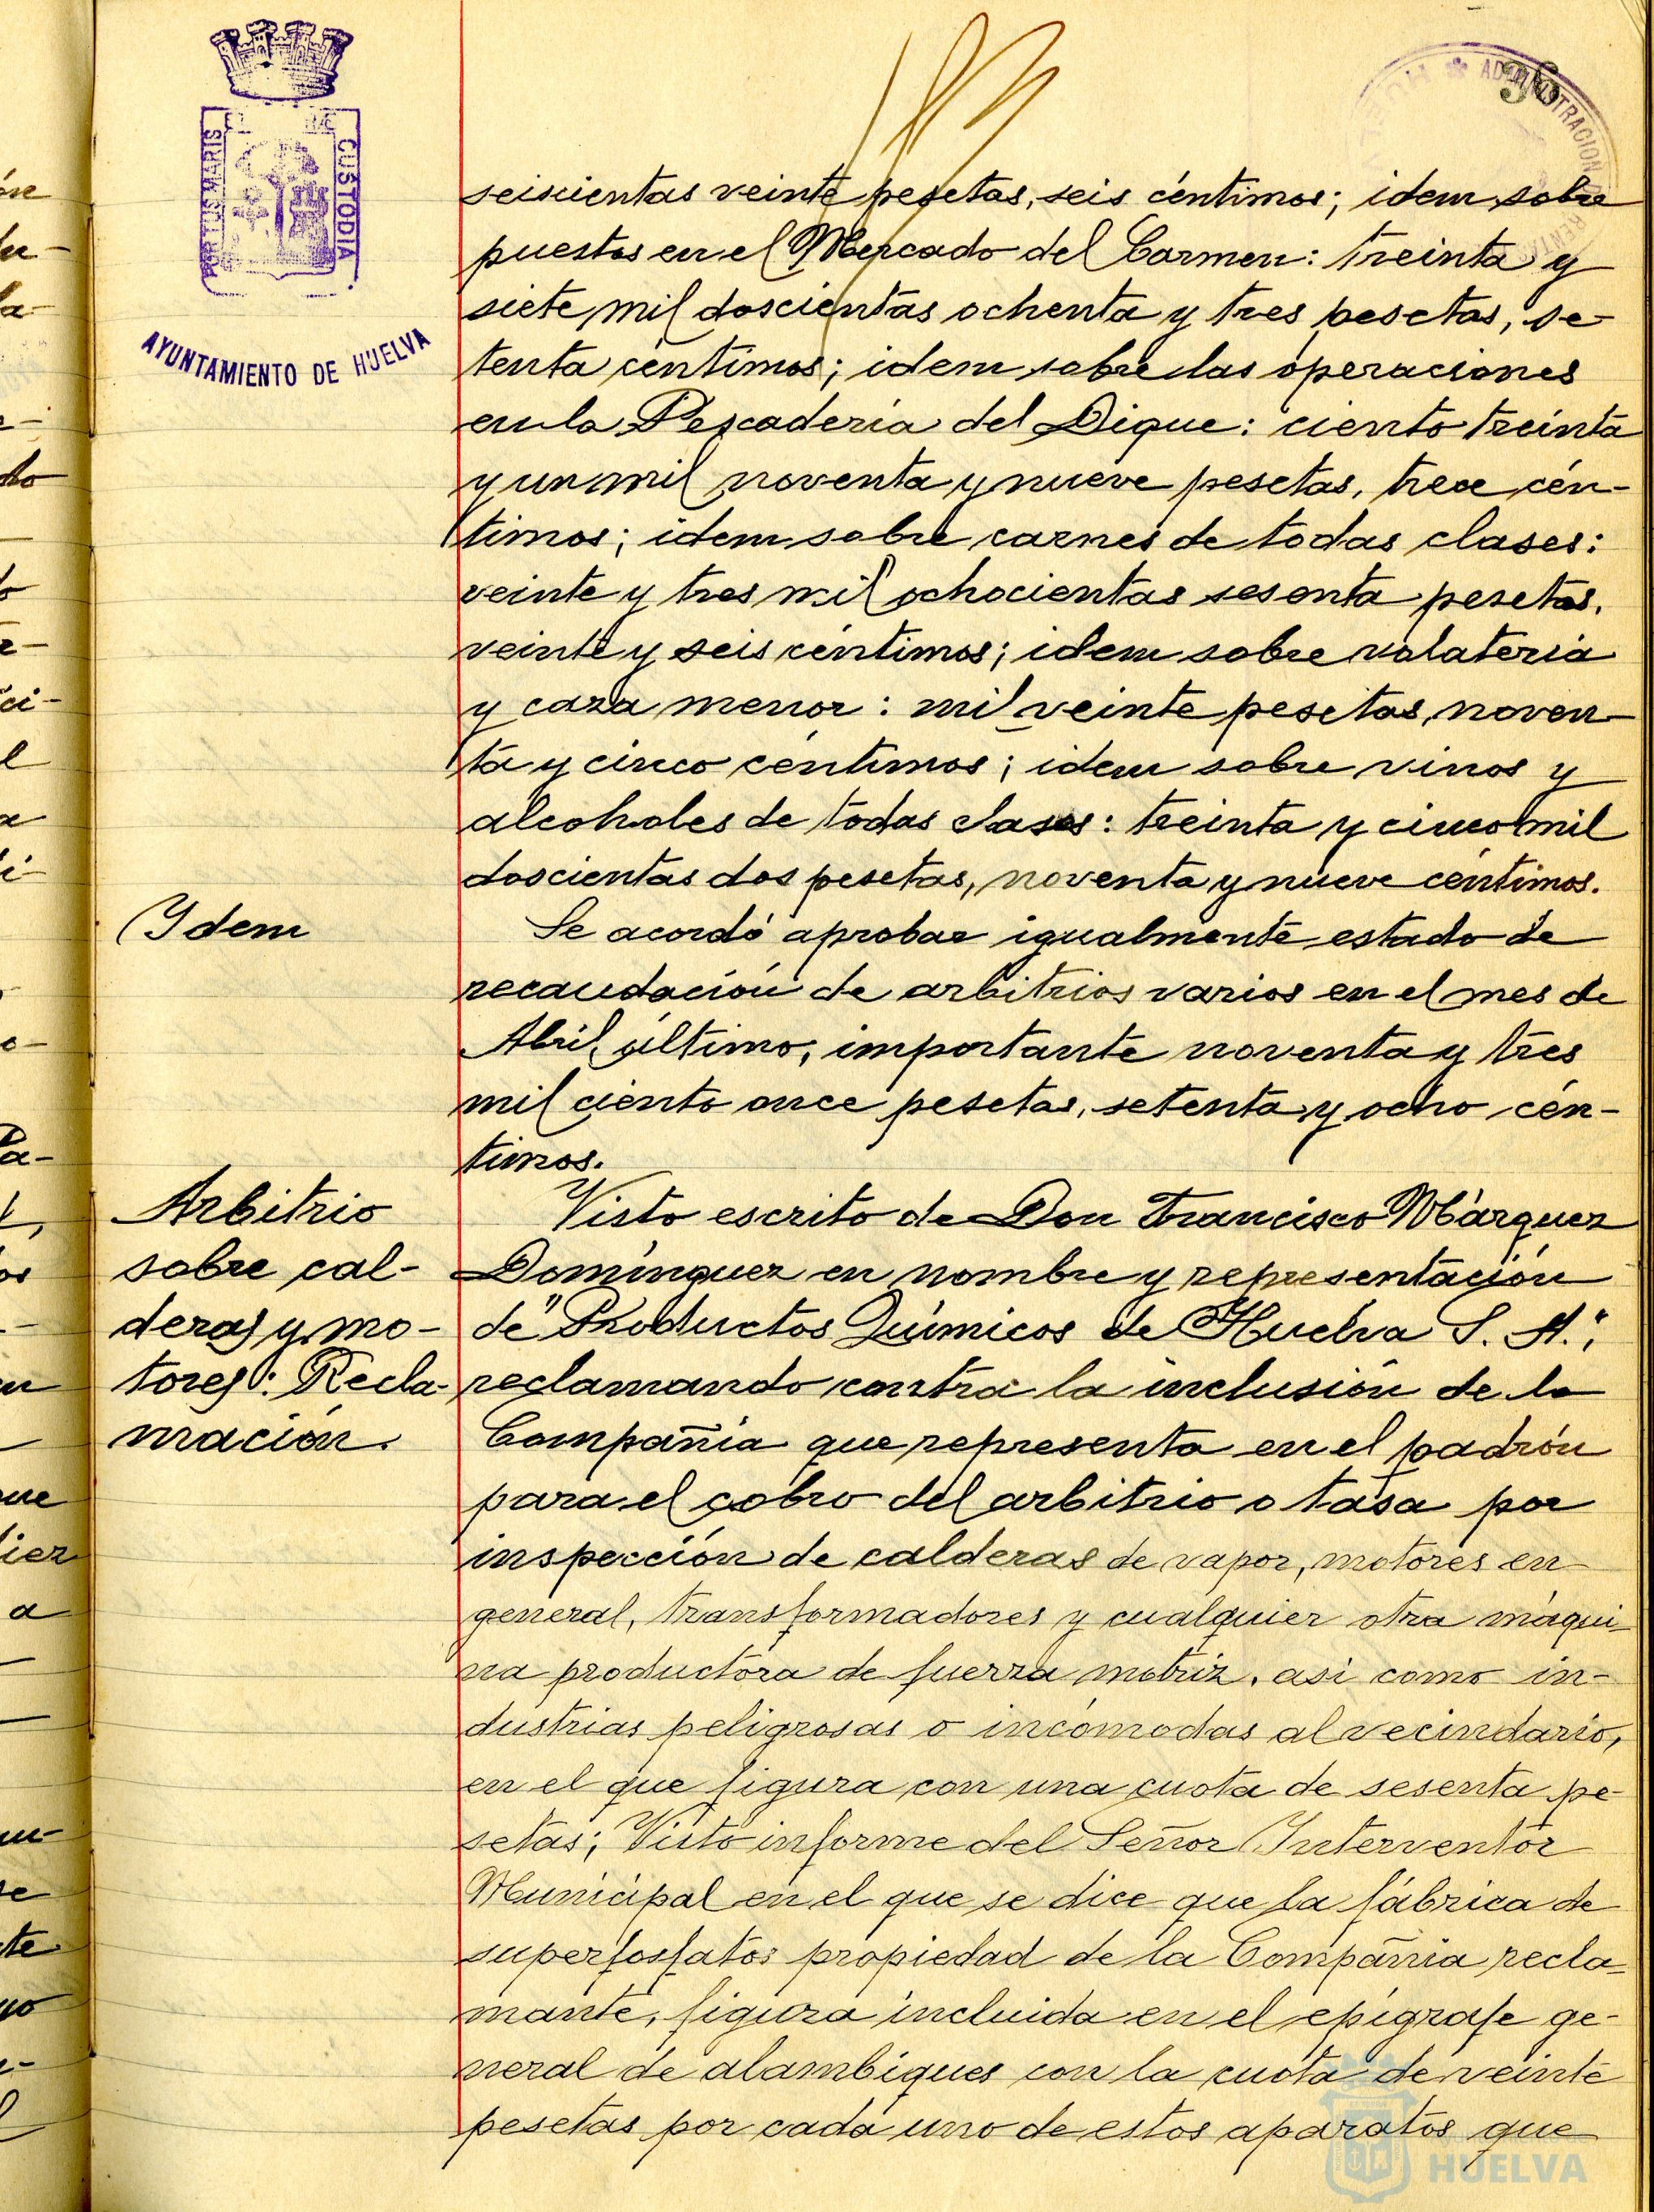 36
ADMINISTRACION
RENTA
PORTUS MARIS
CUSTODIA
AYUNTAMIENTO DE HUELVA
seiscientas veinte pesetas, seis céntimos; idem sobre
puestos en el Mercado del Carmen: treinta y
siete mil doscientas ochenta y tres pesetas, se-
tenta céntimos; idem sobre las operaciones
en la Pescadería del Dique: ciento treinta
y un mil noventa y nueve pesetas, trece cén-
timos; idem sobre carnes de todas clases:
veinte y tres mil ochocientas sesenta pesetas,
veinte y seis céntimos; idem sobre volatería
y caza menor: mil veinte pesetas, noven-
ta y cinco céntimos; idem sobre vinos y
alcoholes de todas clases: treinta y cinco mil
doscientas dos pesetas, noventa y nueve céntimos.
Ydem
Se acordó aprobar igualmente estado de
recaudación de arbitrios varios en el mes de
Abril último, importante noventa y tres
mil ciento once pesetas, setenta y ocho cén-
timos.
Arbitrio
sobre cal-
deras y mo-
tores: Recla-
mación.
Visto escrito de Don Francisco Márquez
Domínguez en nombre y representación
de "Productos Químicos de Huelva S. A.",
reclamando contra la inclusión de la
Compañía que representa en el padrón
para el cobro del arbitrio o tasa por
inspección de calderas de vapor, motores en
general, transformadores y cualquier otra máqui-
na productora de fuerza motriz, asi como in-
dustrias peligrosas o incómodas al vecindario,
en el que figura con una cuota de sesenta pe-
setas; Visto informe del Señor Interventor
Municipal en el que se dice que la fábrica de
superfosfatos propiedad de la Compañía recla-
mante, figura incluida en el epígrafe ge-
neral de alambiques con la cuota de veinte
pesetas por cada uno de estos aparatos que
HUELVA